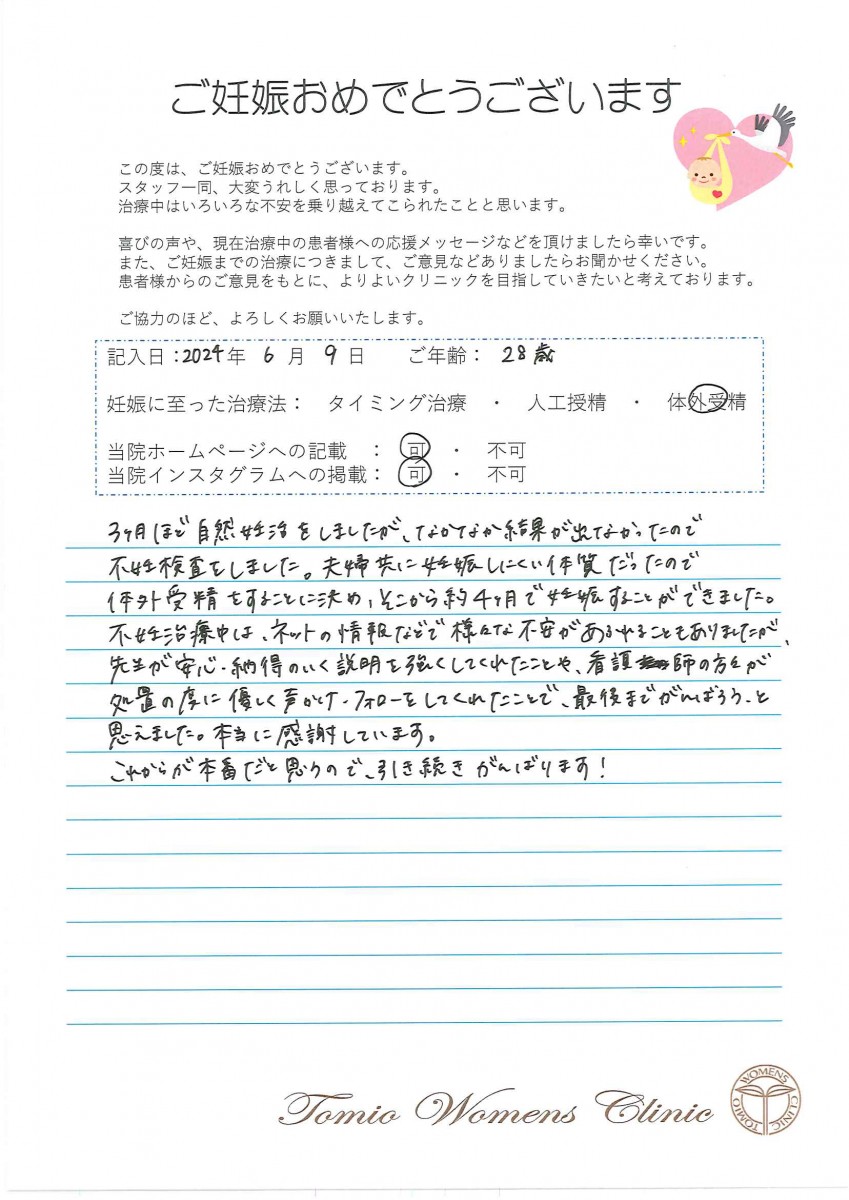 ご妊娠おめでとうございます
この度は、ご妊娠おめでとうございます。
スタッフ一同、大変うれしく思っております。
治療中はいろいろな不安を乗り越えてこられたことと思います。
喜びの声や、現在治療中の患者様への応援メッセージなどを頂けましたら幸いです。
また、ご妊娠までの治療につきまして、ご意見などありましたらお聞かせください。
患者様からのご意見をもとに、よりよいクリニックを目指していきたいと考えております。
ご協力のほど、よろしくお願いいたします。
記入日：2024年 6 月 9 日 ご年齢： 28歳
妊娠に至った治療法： タイミング治療 ・ 人工授精 ・ 体外受精
当院ホームページへの記載 ： 可 ・ 不可
当院インスタグラムへの掲載： 可 ・ 不可
3ヶ月ほど自然妊活をしましたが、なかなか結果が出なかったので
不妊検査をしました。夫婦共に妊娠しにくい体質だったので
体外受精をすることに決め、そこから約4ヶ月で妊娠することができました。
不妊治療中は、ネットの情報などで様々な不安があることもありましたが、
先生が安心・納得のいく説明を強くしてくれたことや、看護師の方々が
処置の度に優しく声かけ・フォローをしてくれたことで、最後までがんばろう、と
思えました。本当に感謝しています。
これからが本番だと思うので、引き続きがんばります！
Tomio Womens Clinic
TOMIO WOMENS CLINIC